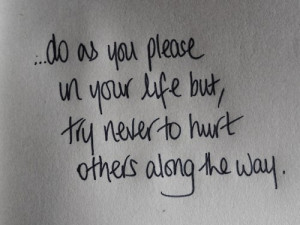 ...do as you please
in your life but,
try never to hurt
others along the way.